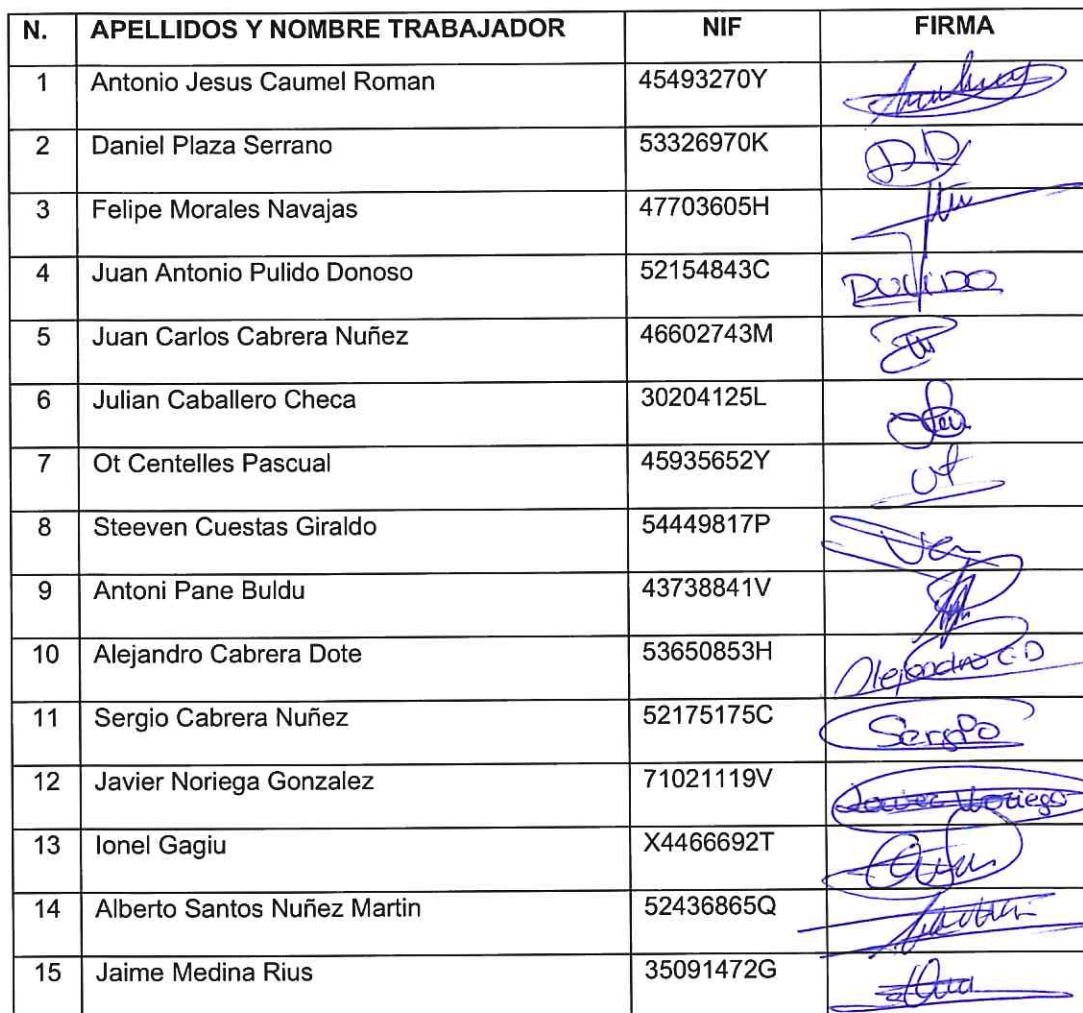 N. APELLIDOS Y NOMBRE TRABAJADOR NIF FIRMA
1 Antonio Jesus Caumel Roman 45493270Y
2 Daniel Plaza Serrano 53326970K
3 Felipe Morales Navajas 47703605H
4 Juan Antonio Pulido Donoso 52154843C PULIDO
5 Juan Carlos Cabrera Nuñez 46602743M
6 Julian Caballero Checa 30204125L
7 Ot Centelles Pascual 45935652Y Ot
8 Steeven Cuestas Giraldo 54449817P
9 Antoni Pane Buldu 43738841V
10 Alejandro Cabrera Dote 53650853H Alejandro C.D
11 Sergio Cabrera Nuñez 52175175C Sergio
12 Javier Noriega Gonzalez 71021119V Javier Noriega
13 Ionel Gagiu X4466692T
14 Alberto Santos Nuñez Martin 52436865Q
15 Jaime Medina Rius 35091472G